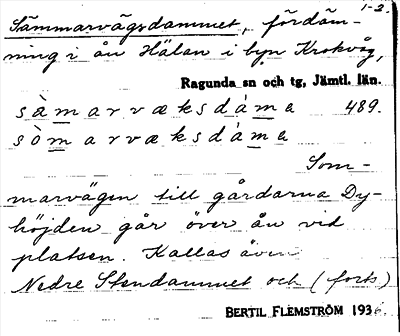 1-2.
Sämmarvägsdammet, fördäm-
ning i ån Hälan i byn Krokvåg,
Ragunda sn och tg, Jämtl. län.
sàmarvæksdáma 489.
sòmarvæksdáma
Som-
marvägen till gårdarna Dy-
höjden går över ån vid
platsen. Kallas även
Nedre Stendammet och (forts)
BERTIL FLEMSTRÖM 1936.